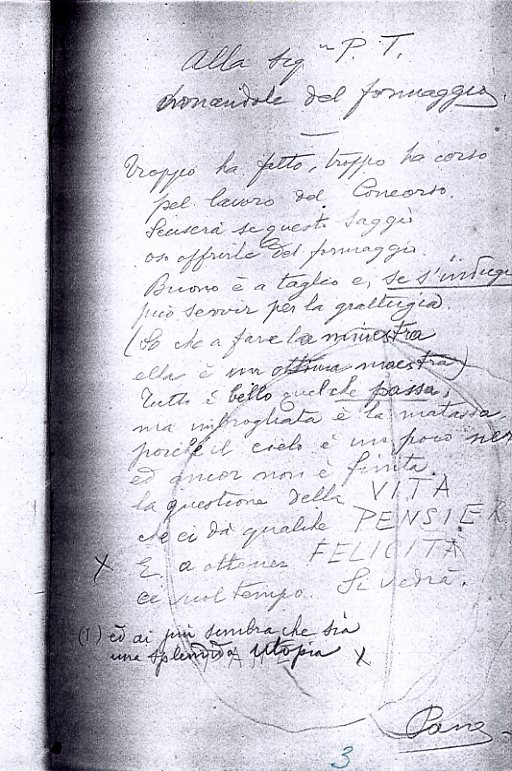 Alla Sig.ra P. T.
donandole del formaggio.
Troppo ha fatto, troppo ha corso
pel lavoro del Concorso.
Scuserà se questi saggi
oso offrirle del formaggio.
Buono è a taglio e, se s'indugia
può servir per la grattugia.
(So che a fare la minestra
ella è un'ottima maestra)
Tutto è bello quel che passa,
ma imbrogliata è la matassa,
poiché il cielo è un poco nero
ed ancor non è finita
la questione della VITA
che ci dà qualche PENSIER
X E a ottener FELICITÀ
ci vuol tempo. Si vedrà.
(1) ed ai più sembra che sia
una splendida utopia X
3